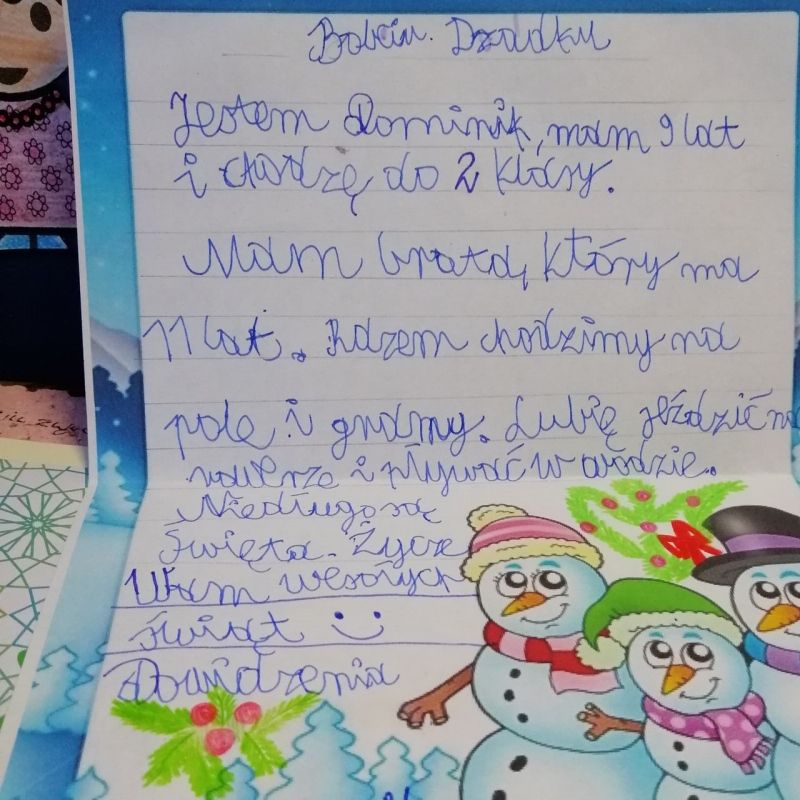 Babciu. Dziadku
Jestem Dominik, mam 9 lat
i chodzę do 2 klasy.
Mam brata, który ma
11 lat. Razem chodzimy na
pole i gramy. Lubię jeździć na
rowerze i pływać w wodzie.
Niedługo są
Święta. Życzę
Wam wesołych
Świąt :)
Dowidzenia